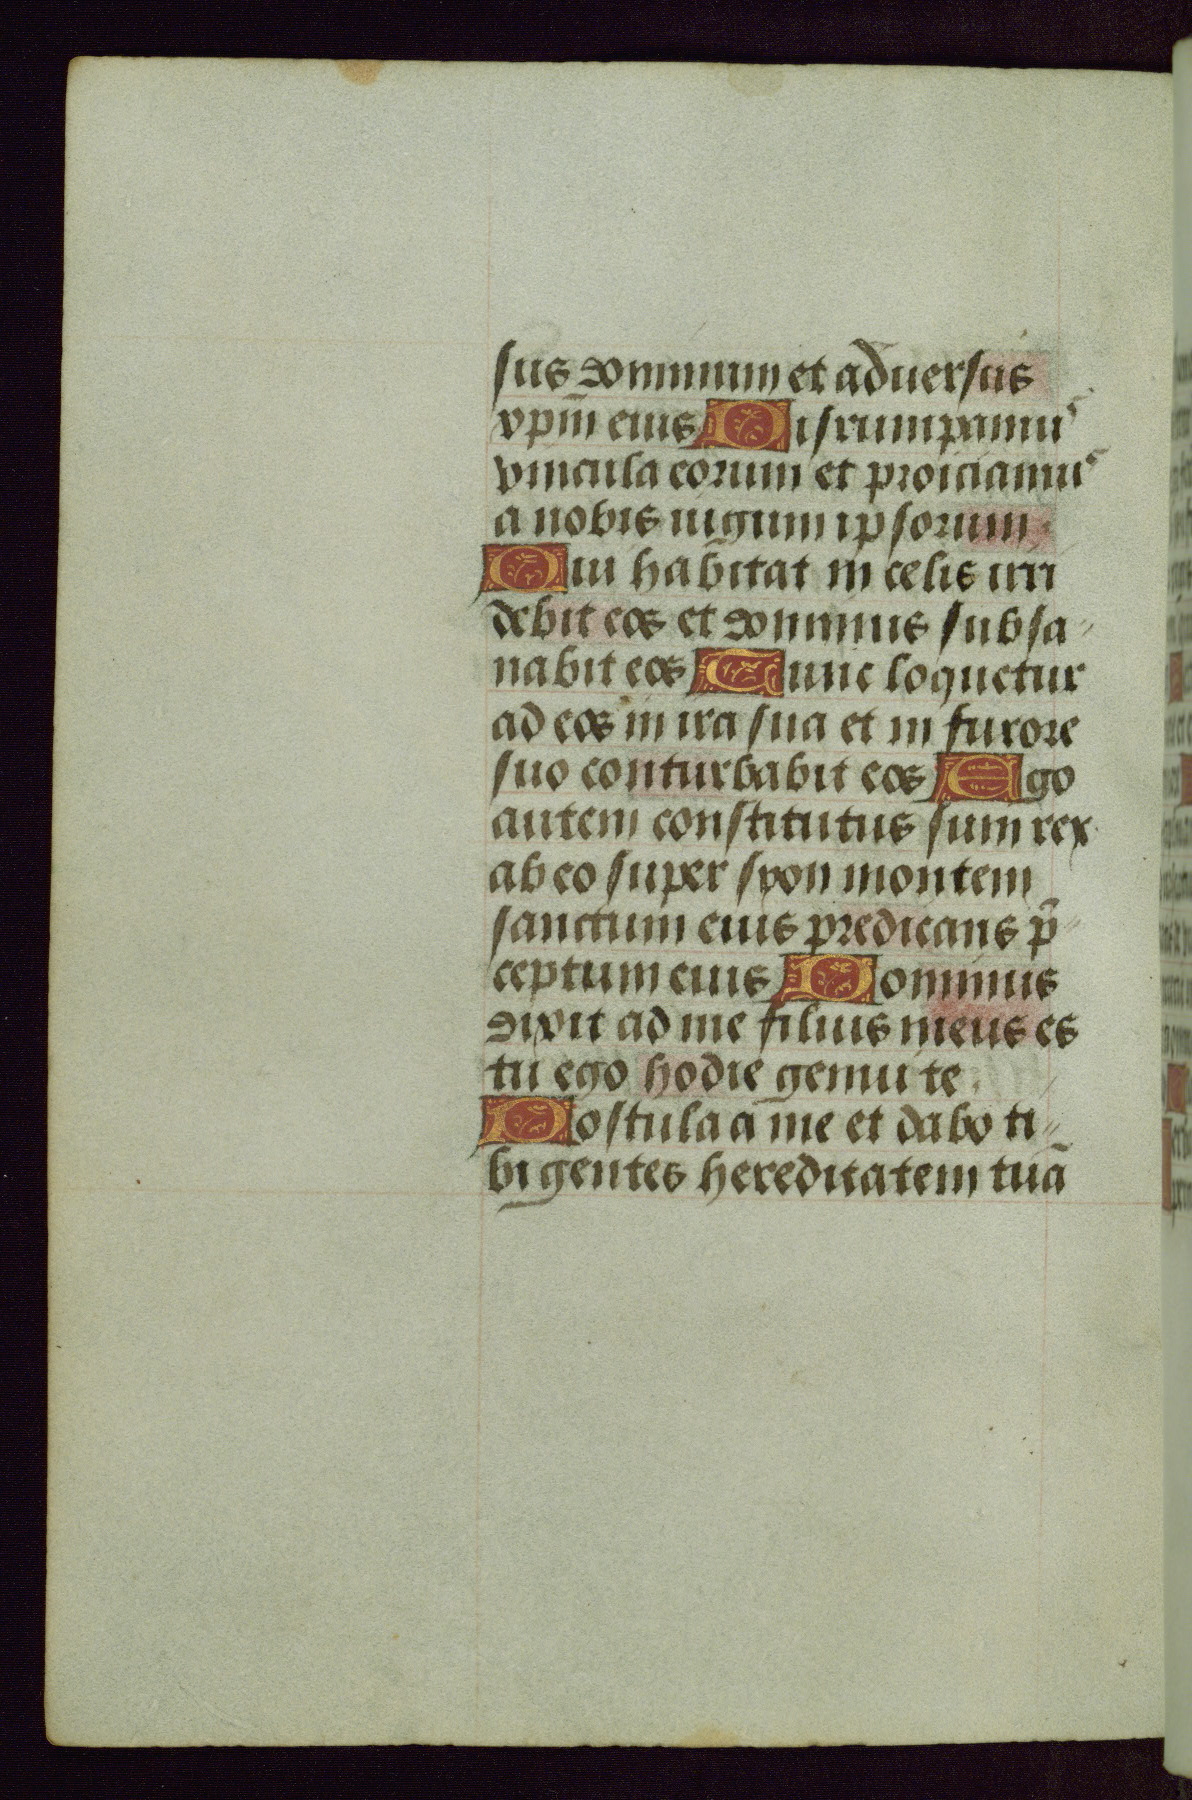 sus dominum et aduersus
xpm̄ eius Disrumpamus
vincula eorum et proiciamus
a nobis iugum ipsorum.
Qui habitat in celis irri
debit eos et dominus subsa-
nabit eos Tunc loquetur
ad eos in ira sua et in furore
suo conturbabit eos Ego
autem constitutus sum rex
ab eo super syon montem
sanctum eius predicans p̄-
ceptum eius Dominus
dixit ad me filius meus es
tu ego hodie genui te.
Postula a me et dabo ti-
bi gentes hereditatem tuā